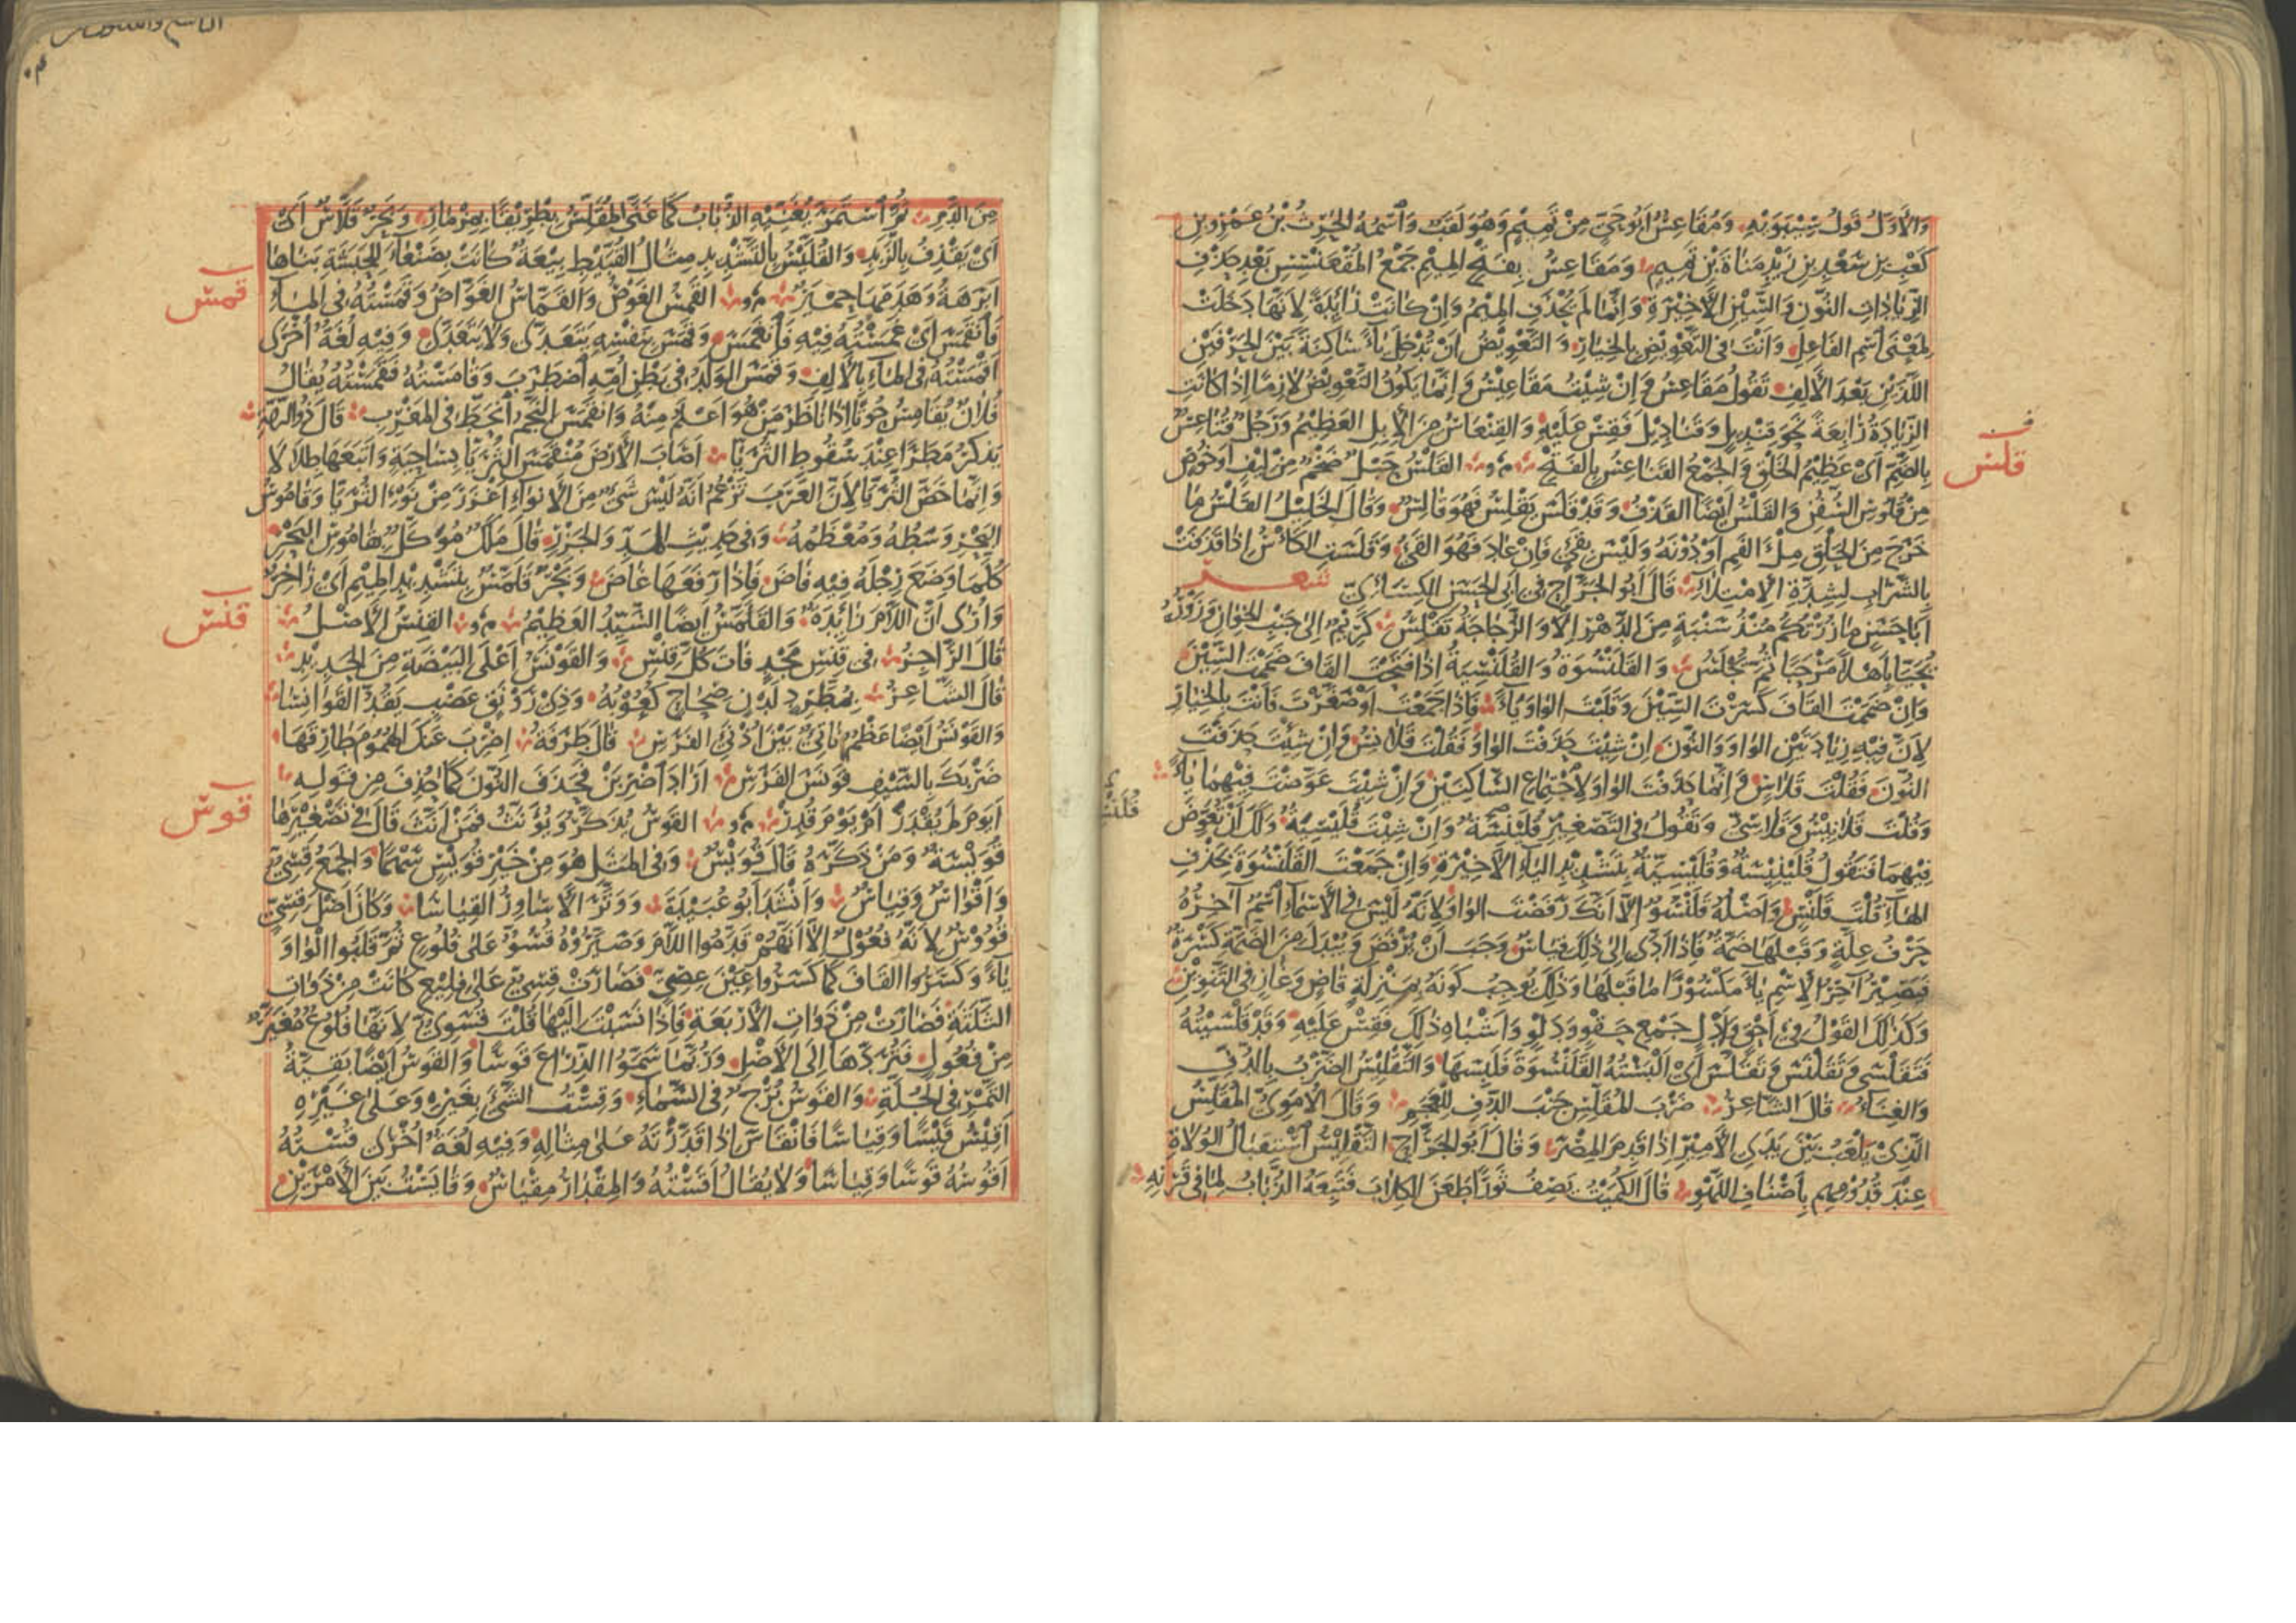 والأول قول سيبويه ومقاعس أبو حي من تميم وهو لقب واسمه الحرث بن عمرو بن
كعب بن سعد بن زيد مناة بن تميم ومقاعس بفتح الميم جمع المقعنسس بعد حذف
الزيادات النون والسين الأخيرة وإنما لم تحذف الميم وإن كانت زائدة لأنها دخلت
لمعنى اسم الفاعل وأنت في التعويض بالخيار والتعويض أن تدخل ياء ساكنة بين الحرفين
اللذين بعد الألف تقول مقاعس وإن شئت مقاعيس وإنما يكون التعويض لازما إذا كانت
الزيادة رابعة نحو قنديل وقناديل فقس عليه والقنعاس من الإبل العظيم ورجل قناعس
بالضم أي عظيم الخلق والجمع القناعس بالفتح القلس حبل ضخم من ليف أو خوص
قلس
من قلوس السفن والقلس أيضا القذف وقد قلس يقلس فهو قالس وقال الخليل القلس ما
خرج من الحلق ملء الفم أو دونه وليس بقيء فإن عاد فهو القيء وقلست الكأس إذا قذفت
بالشراب لشدة الامتلاء قال أبو الجراح في أبي الحسن الكسائي شعر
أبا حسن ما زرتكم منذ سنبة من الدهر إلا والزجاجة تقلس كريم إلى جنب الخوان وزوره
يحيا بأهلا مرحبا ثم يجلس والقلنسوة والقلنسية إذا فتحت القاف ضممت السين
وإن ضممت القاف كسرت السين وقلبت الواو ياء فإذا جمعت أو صغرت فأنت بالخيار
لأن فيه زيادتين الواو والنون إن شئت حذفت الواو فقلت قلانس وإن شئت حذفت
النون فقلت قلاس وإنما حذفت الواو لاجتماع الساكنين وإن شئت عوضت فيهما ياء
وقلت قلانيس وقلاسي وتقول في التصغير قلينسة وإن شئت قليسية ولك أن تعوض
فيهما فتقول قلينيسة وقليسية بتشديد الياء الأخيرة وإن جمعت القلنسوة بحذف
الهاء قلت قلنس وأصله قلنسو إلا أنك رفضت الواو لأنه ليس في الأسماء اسم آخره
حرف علة وقبلها ضمة فإذا أدى إلى ذلك قياس وجب أن يرفض ويبدل من الضمة كسرة
فيصير آخر الاسم ياء مكسورا ما قبلها وذلك يوجب كونه بمنزلة قاض وغاز في التنوين
وكذلك القول في أحق وأدل جمع حقو ودلو وأشباه ذلك فقس عليه وقد قلسيته
فتقلسى وتقلنس وتقلس أي ألبسته القلنسوة فلبسها والتقليس الضرب بالدف
والغناء قال الشاعر ضرب المقلس جنب الدف للعجم وقال الأموي المقلس
الذي يلعب بين يدي الأمير إذا قدم المصر وقال أبو الجراح التقليس استقبال الولاة
عند قدومهم بأصناف اللهو قال الكميت يصف ثورا طعن الكلاب فتبعه الذباب لما في قرنه
من الدم ثم استمر يغنيه الذباب كما غنى المقلس بطريقا بمزمار وبحر قلاس أي
أي يقذف بالزبد والقليس بالتشديد مثال القبيط بيعة كانت بصنعاء للحبشة بناها
أبرهة وهدمها حمير القمس الغوص والقماس الغواص وقمسته في الماء
قمس
فانقمس أي غمسته فيه فانغمس وقمس بنفسه يتعدى ولا يتعدى وفيه لغة أخرى
أقمسته في الماء بالألف وقمس الولد في بطن أمه اضطرب وقامسته فقمسته يقال
فلان يقامس حوتا إذا ناظر من هو أعلم منه وانقمس النجم انحط في المغرب قال ذو الرمة
يذكر مطرا عند سقوط الثريا أصاب الأرض منقمس الثريا بساحية وأتبعها طلالا
وإنما خص الثريا لأن العرب تزعم أنه ليس شيء من الأنواء أغزر من نوء الثريا وقاموس
البحر وسطه ومعظمه وفي حديث المد والجزر قال ملك موكل بقاموس البحر
كلما وضع رجله فيه فاض فإذا رفعها غاض وبحر قلمس بتشديد الميم أي زاخر
وأرى أن اللام زائدة والقلمس أيضا السيد العظيم القنس الأصل
قنس
قال الراجز في قنس مجد فات كل قنس والقونس أعلى البيضة من الحديد
قال الشاعر بمطرد لدن صحاح كعوبه وذي رونق عضب يقد القوانسا
والقونس أيضا عظم ناتئ بين أذني الفرس قال طرفة اضرب عنك الهموم طارقها
ضربك بالسيف قونس الفرس أراد اضربن فحذف النون كما حذف من قوله
أيوم لم يقدر أم يوم قدر القوس يذكر ويؤنث فمن أنث قال في تصغيرها
قوس
قويسة ومن ذكره قال قويس وفي المثل هو من خير قويس سهما والجمع قسي
وأقواس وقياس وأنشد أبو عبيدة ووتر الأساور القياسا وكان أصل قسي
قووس لأنه فعول إلا أنهم قدموا اللام وصيروه قسو على فلوع ثم قلبوا الواو
ياء وكسروا القاف كما كسروا عين عصي فصارت قسي على فليع كانت من ذوات
الثلثة فصارت من ذوات الأربعة فإذا نسبت إليها قلت قسوي لأنها فلوع مغير
من فعول فتردها إلى الأصل وربما سموا الذراع قوسا والقوس أيضا بقية
التمر في الجلة والقوس برج في السماء وقست الشيء بغيره وعلى غيره
أقيس قيسا وقياسا فانقاس إذا قدرته على مثاله وفيه لغة أخرى قسته
أقوسه قوسا وقياسا ولا يقال أقسته والمقدار مقياس وقايست بين الأمرين